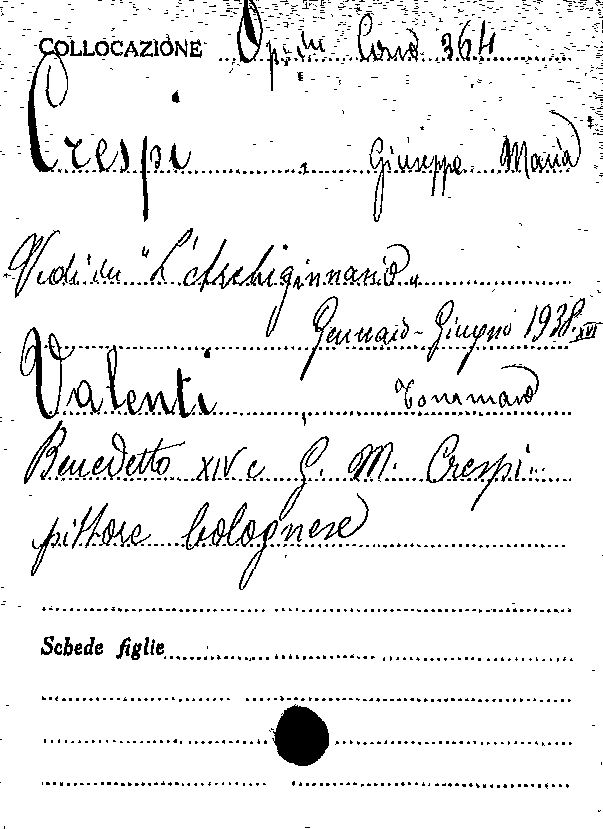 COLLOCAZIONE Op. in Corso 364
Crespi, Giuseppe Maria
Vedi in "L'Archiginnasio"
Gennaio - Giugno 1938. XVI
Valenti, Tommaso
Benedetto XIV e G. M. Crespi
pittore bolognese
Schede figlie